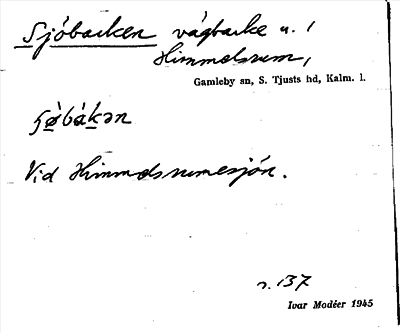 Sjöbacken vägbacke u. /
Himmelsrum,
Gamleby sn, S. Tjusts hd, Kalm. l.
Vid Himmelsrumesjön.
s. 137
Ivar Modéer 1945